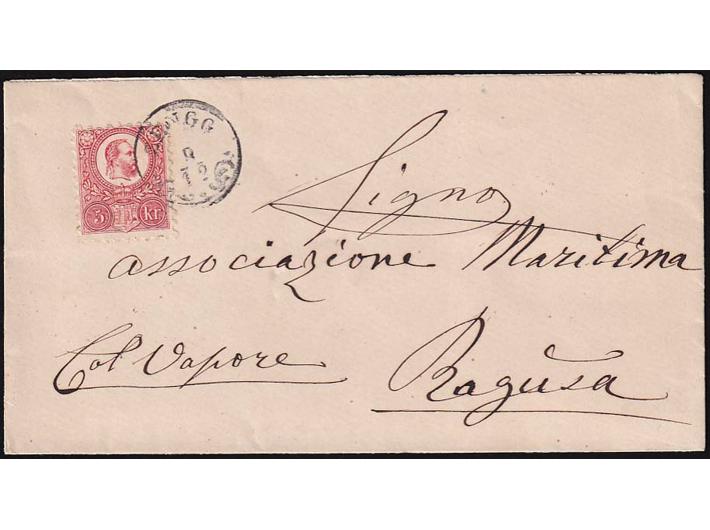 ZENGG
9
12
5 kr
Signo
associazione Maritima
Col Vapore
Ragusa